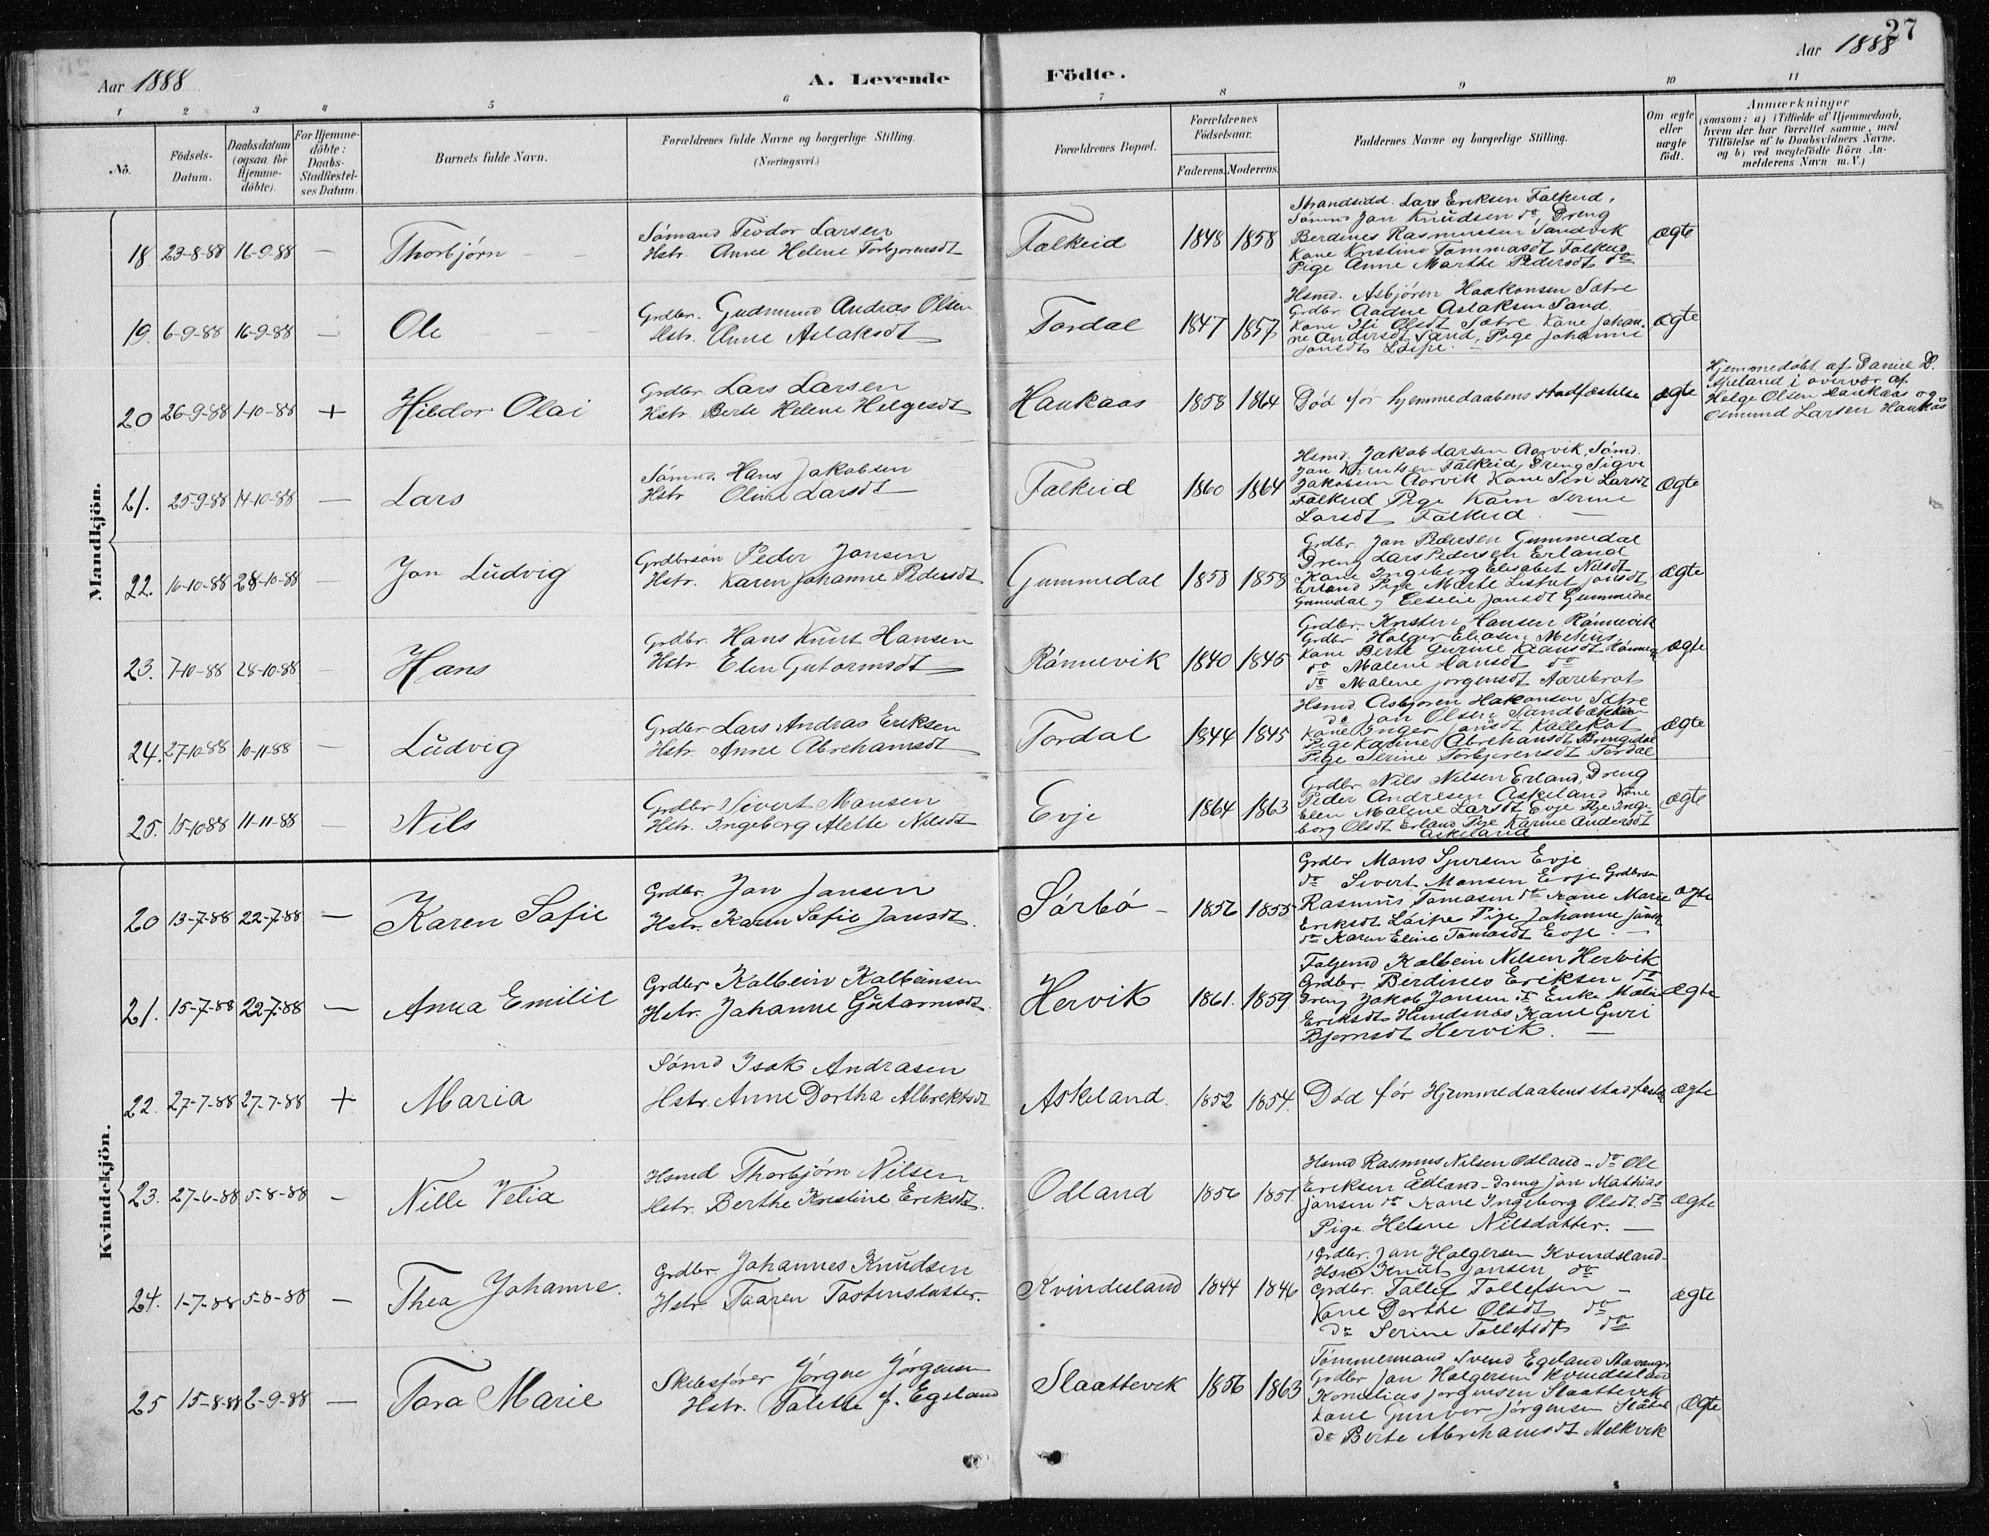 27
Aar 1888
A. Levende
Födte.
Aar 1888
1 2 3 4 5 6 7 8 9 10 11
No.
Födsels-Datum.
Daabsdatum (ogsaa for Hjemme-döbte).
For Hjemme-döbte: Daabs-Stadfæstel-ses Datum.
Barnets fulde Navn.
Forældrenes fulde Navne og borgerlige Stilling.
(Næringsvei.)
Forældrenes Bopæl.
Forældrenes Födselsaar.
Faderens. Moderens.
Faddernes Navne og borgerlige Stilling.
Om ægte eller uægte födt.
Anmærkninger
(saasom: a) i Tilfælde af Hjemmedaab,
hvem der har forrettet samme, med
Tilföielse af to Daabsvidners Navne.
og b) ved uægtefödte Börn An-
melderens Navn m. V.)
Mandkjön.
18 23-8-88 16-9-88 — Thorbjørn
Sømand Teodor Larsen
Hstr. Anne Helene Torbjørnsdt
Falkeid 1848 1858
Strandsidd. Lars Eriksen Falkeid,
Sømnd Jan Knudsen do, Dreng
Berdines Rasmussen Sandvik
Kone Kristine Tommasdt Falkeid
Pige Anne Marthe Pedersdt do
ægte
19. 6-9-88 16-9-88 — Ole
Grdbr. Gudmund Andras Olsen
Hstr. Anne Aslaksdt
Tordal 1847 1857
Hsmd. Asbjören Haakonsen Sætre
Grdbr. Aadne Aslaksen Sand
Kone Siri Olsdt Sætre Kone Johan-
ne Andersdt Sand, Pige Johanne
Jansdt
ægte
20 26-9-88 1-10-88 + Hildor Olai
Grdbr. Lars Larsen
Hstr. Berte Helene Helgesdt
Haukaas 1858 1864 Död før hjemmedaabens stadfæstelse ægte
Hjemmedøbt af Daniel D.
Apeland i overvær af
Helge Olsen Haukaas og
Osmund Larsen Haukås
21. 25-9-88 14-10-88 — Lars
Sømnd. Hans Jakobsen
Hstr. Oline Larsdt
Falkeid 1860 1864
Hsmd. Jakob Larsen Aarvik, Sømd.
Jan Knutsen Falkeid, Dreng Sigve
Jakobsen Aarvik Kone Siri Larsdt
Falkeid Pige Karn Serine
Larsdt Falkeid
ægte
22. 16-10-88 28-10-88 — Jan Ludvig
Grdbrsøn Peder Jansen
Hstr. Karen Johanne Pedersdt
Gummedal 1858 1858
Grdbr. Jan Pedersen Gummedal
Dreng Lars Pedersen Erland
Kone Ingeborg Elisabet Nilsdt
Erland Pige Marte Lisbet Jansdt
Gumedal, Ceselie Jansdt Gummedal
ægte
23. 7-10-88 28-10-88 Hans
Grdbr. Hans Knut Hansen
Hstr. Elen Gutormsdt
Rönnevik 1840 1845
Grdbr. Kristen Hansen Rönnevik
Grdbr Holger Eliasen Métus
Kone Berte Gurine Hansdt Rönnev.
do Malene Hansdt do
do Malene Jørgensdt Aarebrot
ægte
24. 27-10-88 10-11-88 — Ludvig
Grdbr Lars Andras Eriksen
Hstr. Anne Abrehamsdt
Tordal 1844 1845
Hsmd Asbjören Hakonsen Sætre
do Jan Olsen Sandbækken
Kone Inger Jansdt Kallekat
Pige Karine Abrehamsdt Bringedal
Pige Serine Torbjørensdt Tordal
ægte
25. 15-10-88 11-11-88 — Nils
Grdbr Sivert Mansen
Hstr. Ingeborg Alette Nilsdt
Evje 1864 1863
Grdbr. Nils Nilsen Erland Dreng
Peder Andresen Askeland Kone
Elen Malene Larsdt Evje Pige Inge-
borg Olsdt Erland Pige Karine Andersdt
Askeland
ægte
Kvindekjön.
20 13-7-88 22-7-88 — Karen Sofie
Grdbr. Jan Jansen
Hstr. Karen Sofie Jansdt.
Sörbö — 1856 1855
Grdbr Mons Sjursen Evje
do Sivert Monsen Evje Grdbrsøn
Rasmus Tomasen do Kone Marie
Eriksdt Pige Johanne Jansdt
do Karen Eline Tomasdt Evje. —
ægte
21. 15-7-88 22-7-88 — Anna Emilie
Grdbr Kolbein Kolbeinsen
Hstr. Johanne Gutormsdt.
Hervik 1861. 1859
Folgemd Kolbein Nilsen Hervik
Grdbr. Berdines Eriksen do
Dreng Jakob Jansen do Enke Malie
Eriksdt Hundsnæs Kone Guri
Bjornsdt Hervik. —
ægte
22. 27-7-88 27-7-88 + Maria
Sømd Isak Andrasen
Hstr. Anne Dortha Albrektsdt
Askeland. 1852 1854. Död før Hjemmedaabens stadfæstelse ægte
23. 27-6-88 5-8-88 — Nille Velia
Hsmd Thorbjørn Nilsen
Hstr. Berthe Kristine Eriksdt.
Odland 1856 1851.
Hsmd Rasmus Nilsen Odland — do Ole
Eriksen Ødland — dreng Jan Mathias
Jansen do Kone Ingeborg Olsdt. do
Pige Helene Nilsdatter. —
ægte
24. 1-7-88 5-8-88 — Thea Johanne.
Grdbr. Johannes Knudsen
Hstr. Taaren Tostensdatter.
Kvindesland 1844 1846
Grdbr. Jan Holgersen Kvindsland
Hsmd Knut Jansen do
Grdbr. Tollef Tollefsen —
Kone Dorthe Olsdt do
do Serine Tollefsdt do
ægte
25 15-8-88 2-9-88 — Tora Marie
Skibsfører Jörgne Jörgensen
Hstr. Talette f. Egeland
Slaattevik 1856 1863
Tömmermand Svend Egeland Stavanger
Grdbr Jan Holgersen Kvindesland
Kornelius Jörgensen Slaattevik
Kone Gunvor Jörgensen
do Berte Abrehamsdt Melkvik
Ægte